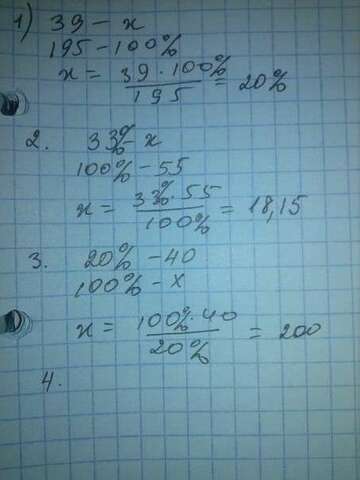 1) 39 - x
195 - 100%
x = 39 · 100% / 195 = 20%
2. 33% - x
100% - 55
x = 33% · 55 / 100% = 18,15
3. 20% - 40
100% - x
x = 100% · 40 / 20% = 200
4.